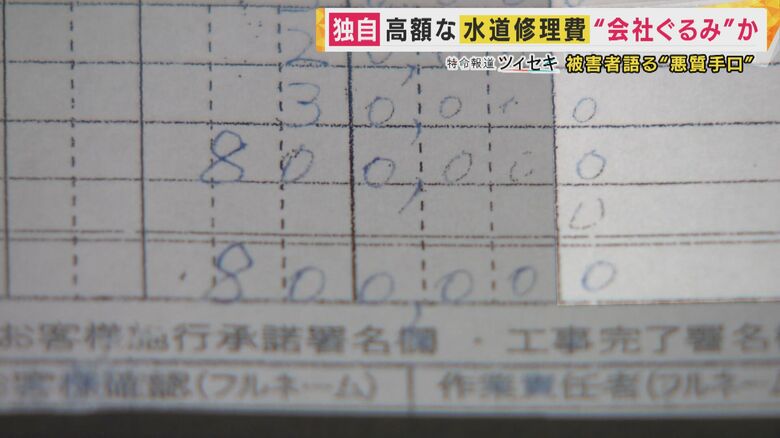 独自 高額な 水道修理費 “会社ぐるみ”か
特命報道 ツイセキ 被害者語る“悪質手口”
30,000
800,000
0
800,000
お客様施行承諾署名欄 ・ 工事完了署名
お客様確認(フルネーム) 作業責任者(フルネーム